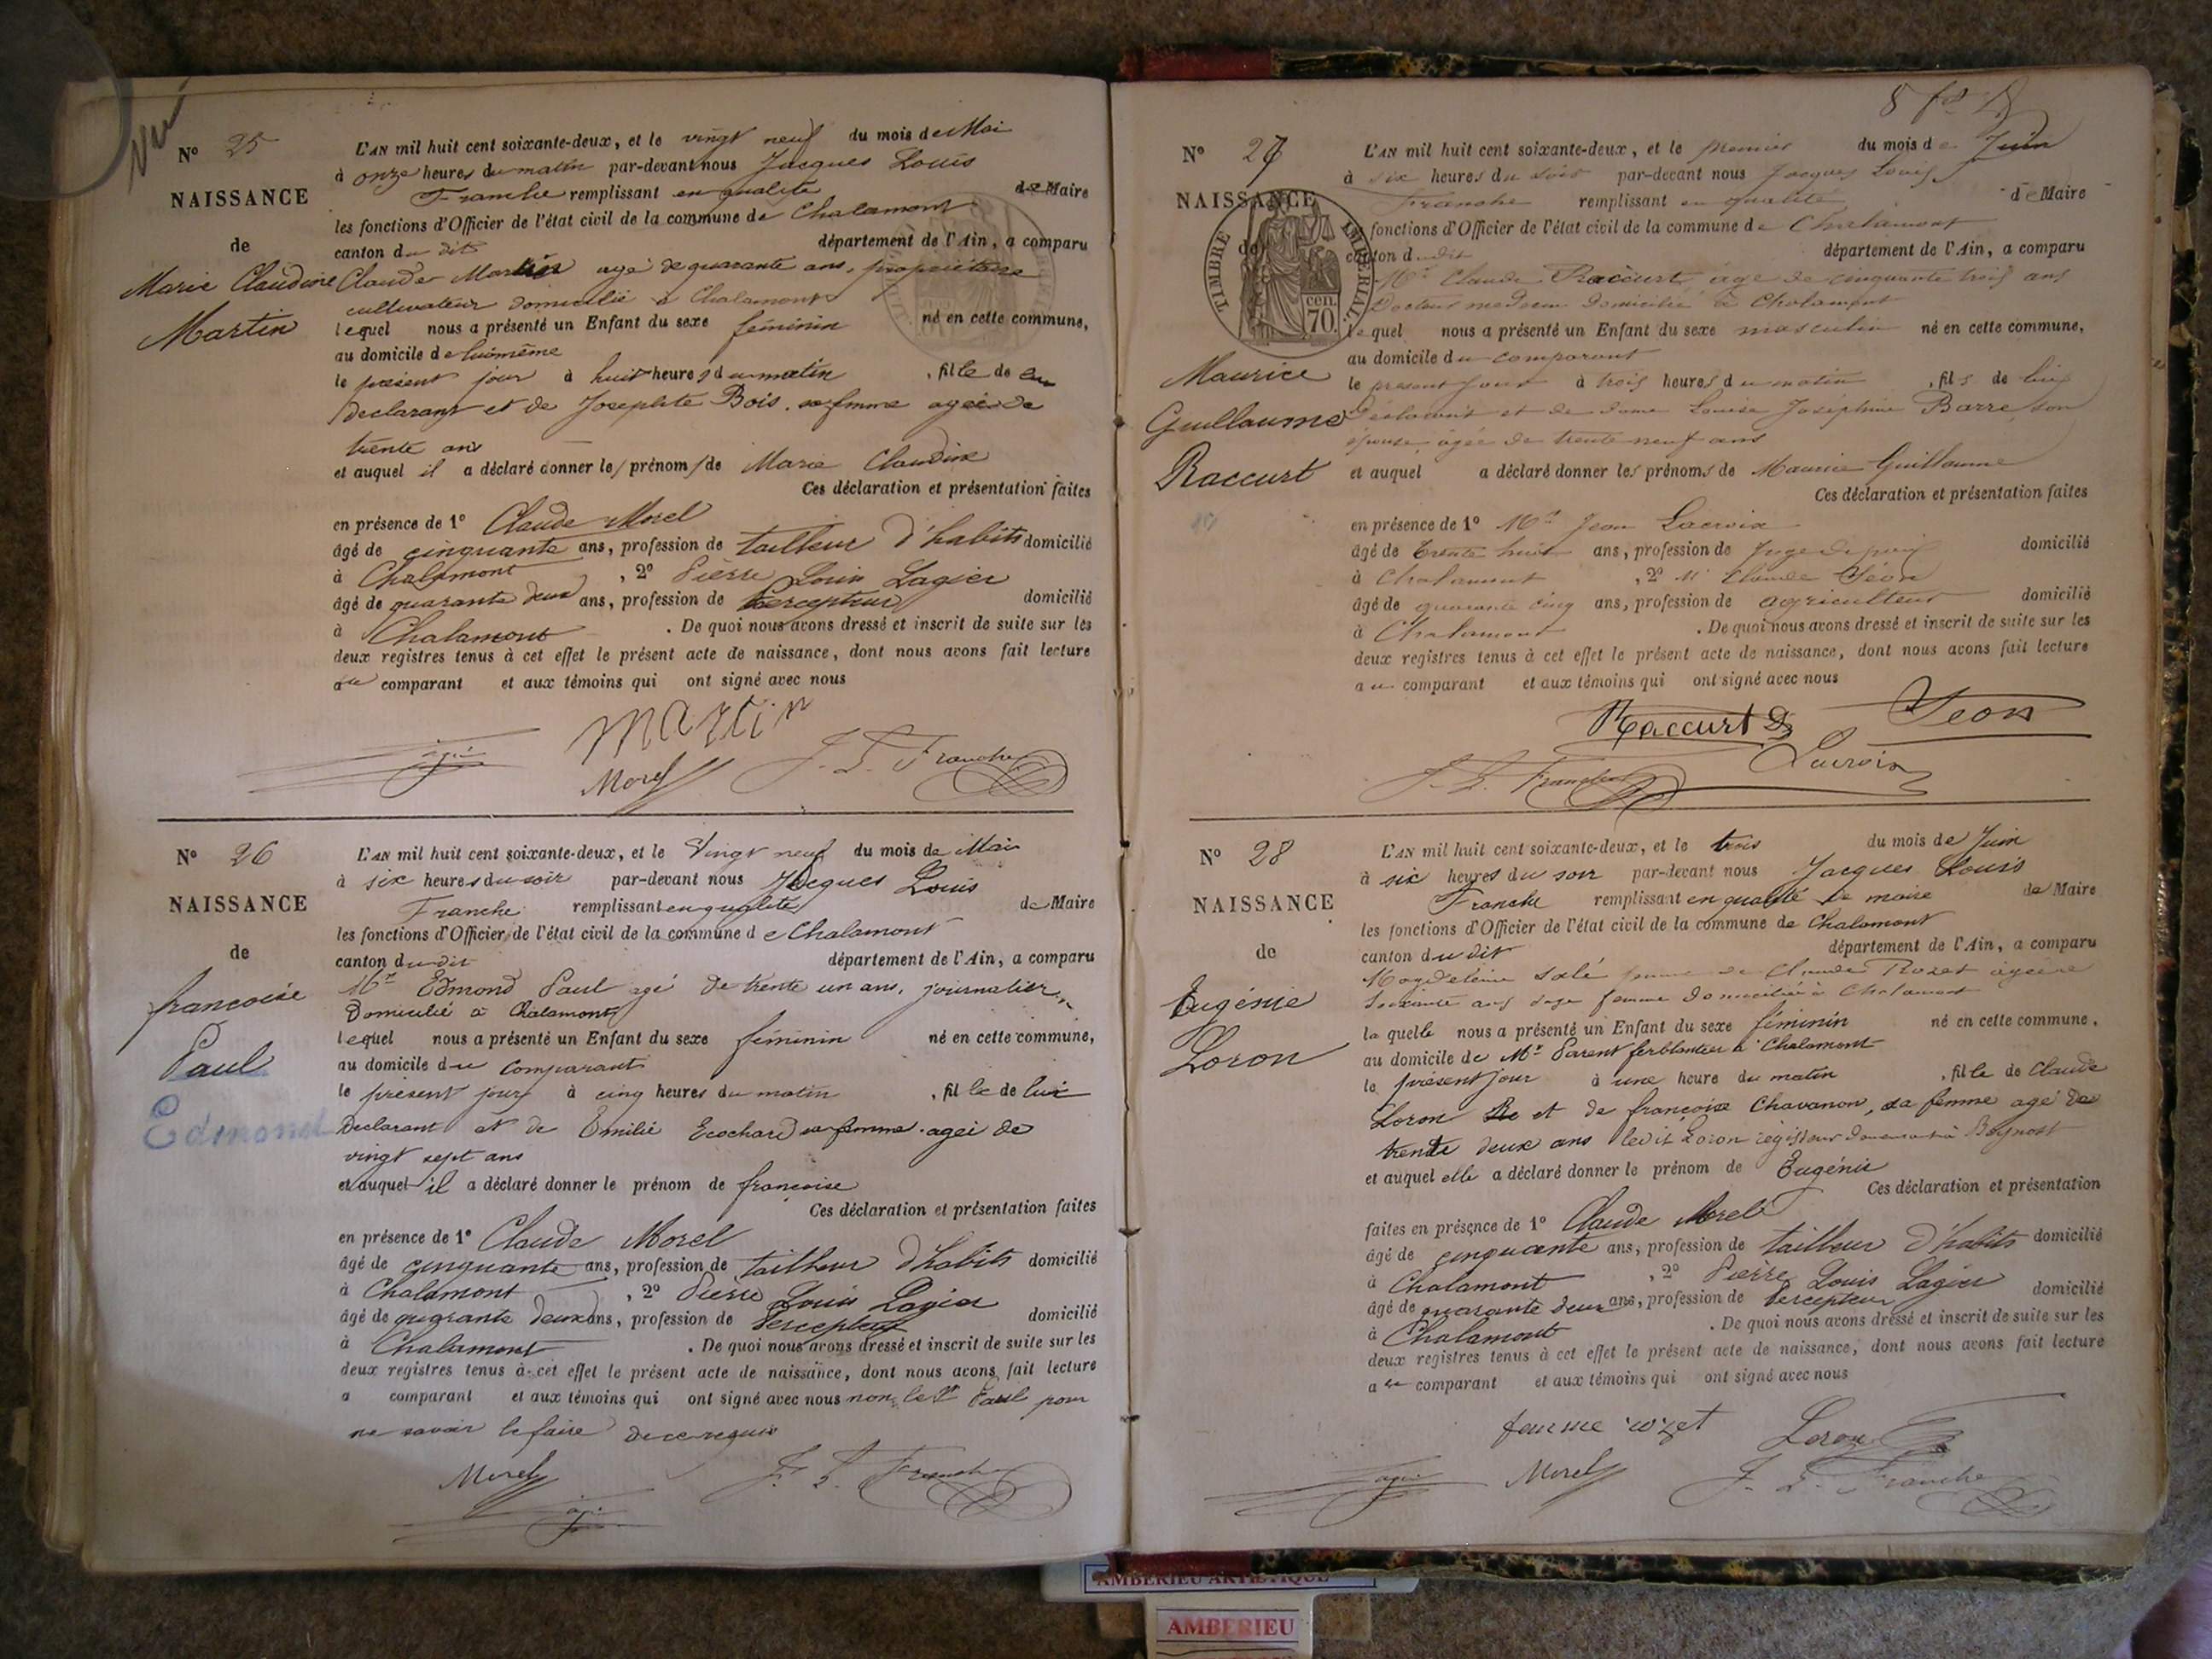 Vu
N° 25
NAISSANCE
de
Marie Claudine
Martin
L'AN mil huit cent soixante-deux, et le vingt neuf du mois de Mai
à onze heures du matin par-devant nous Jacques Louis
Franche remplissant en qualité de Maire
les fonctions d'Officier de l'état civil de la commune de Chalamont
canton du dit département de l'Ain, a comparu
Claude Martin agé de quarante ans, propriétaire
cultivateur domicilié à Chalamont
lequel nous a présenté un Enfant du sexe féminin né en cette commune,
au domicile de luimême
le présent jour à huit heures du matin, fille de
declarant et de Josephte Bois sa femme agée de
trente ans
et auquel il a déclaré donner le prénom de Marie Claudine
Ces déclaration et présentation faites
en présence de 1° Claude Morel
âgé de cinquante ans, profession de tailleur d'habits domicilié
à Chalamont, 2° Pierre Louis Lagier
âgé de quarante deux ans, profession de Percepteur domicilié
à Chalamont. De quoi nous avons dressé et inscrit de suite sur les
deux registres tenus à cet effet le présent acte de naissance, dont nous avons fait lecture
au comparant et aux témoins qui ont signé avec nous
Martin
Morel J. L. Franche
N° 26
NAISSANCE
de
françoise
Paul
Edmond
L'AN mil huit cent soixante-deux, et le Vingt neuf du mois de Mai
à six heures du soir par-devant nous Jacques Louis
Franche remplissant en qualité de Maire
les fonctions d'Officier de l'état civil de la commune de Chalamont
canton du dit département de l'Ain, a comparu
Mr Edmond Paul agé de trente un ans, journalier
Domicilié à Chalamont
lequel nous a présenté un Enfant du sexe féminin né en cette commune,
au domicile du comparant
le présent jour à cinq heures du matin, fille de lui
Declarant et de Emilie Ecochard sa femme agei de
vingt sept ans
et auquel il a déclaré donner le prénom de françoise
Ces déclaration et présentation faites
en présence de 1° Claude Morel
âgé de cinquante ans, profession de tailleur d'habits domicilié
à Chalamont, 2° Pierre Louis Lagier
âgé de quarante deux ans, profession de Percepteur domicilié
à Chalamont. De quoi nous avons dressé et inscrit de suite sur les
deux registres tenus à cet effet le présent acte de naissance, dont nous avons fait lecture
a comparant et aux témoins qui ont signé avec nous non le Sr Paul pour
ne savoir le faire de ce requis
Morel J. L. Franche
N° 27
NAISSANCE
de
Maurice
Guillaume
Raccurt
TIMBRE IMPÉRIAL
70 cen.
L'AN mil huit cent soixante-deux, et le premier du mois de Juin
à six heures du soir par-devant nous Jacques Louis
Franche remplissant en qualité de Maire
fonctions d'Officier de l'état civil de la commune de Chalamont
canton d. dit département de l'Ain, a comparu
Mr Claude Raccurt agé de cinquante trois ans
Docteur medecin domicilié à Chalamont
lequel nous a présenté un Enfant du sexe masculin né en cette commune,
au domicile du comparant
le présent jour à trois heures du matin, fils de lui
Déclarant et de dame Louise Joséphine Barre son
épouse, agée de trente neuf ans
et auquel a déclaré donner les prénoms de Maurice Guillaume
Ces déclaration et présentation faites
en présence de 1° Mr Jean Lacroix
âgé de trente huit ans, profession de Juge de paix domicilié
à Chalamont, 2° Mr Claude Séon
âgé de quarante cinq ans, profession de agriculteur domicilié
à Chalamont. De quoi nous avons dressé et inscrit de suite sur les
deux registres tenus à cet effet le présent acte de naissance, dont nous avons fait lecture
au comparant et aux témoins qui ont signé avec nous
Raccurt D Seon
J. L. Franche Lacroix
N° 28
NAISSANCE
de
Eugénie
Loron
L'AN mil huit cent soixante-deux, et le trois du mois de Juin
à six heures du soir par-devant nous Jacques Louis
Franche remplissant en qualité de maire de Maire
les fonctions d'Officier de l'état civil de la commune de Chalamont
canton du dit département de l'Ain, a comparu
Magdeleine Salé femme de Claude Rozet agée de
soixante ans sage femme domiciliée à Chalamont
laquelle nous a présenté un Enfant du sexe féminin né en cette commune,
au domicile de Mr Parent ferblantier à Chalamont
le présent jour à une heure du matin, fille de Claude
Loron et de françoise Chavanon, sa femme agé de
trente deux ans ledit Loron régisseur demeurant à Beynost
et auquel elle a déclaré donner le prénom de Eugénie
Ces déclaration et présentation
faites en présence de 1° Claude Morel
âgé de cinquante ans, profession de tailleur d'habits domicilié
à Chalamont, 2° Pierre Louis Lagier
âgé de quarante deux ans, profession de Percepteur domicilié
à Chalamont. De quoi nous avons dressé et inscrit de suite sur les
deux registres tenus à cet effet le présent acte de naissance, dont nous avons fait lecture
a comparant et aux témoins qui ont signé avec nous
femme rozet Loron
Morel J. L. Franche
AMBERIEU ARTISTIQUE
AMBERIEU